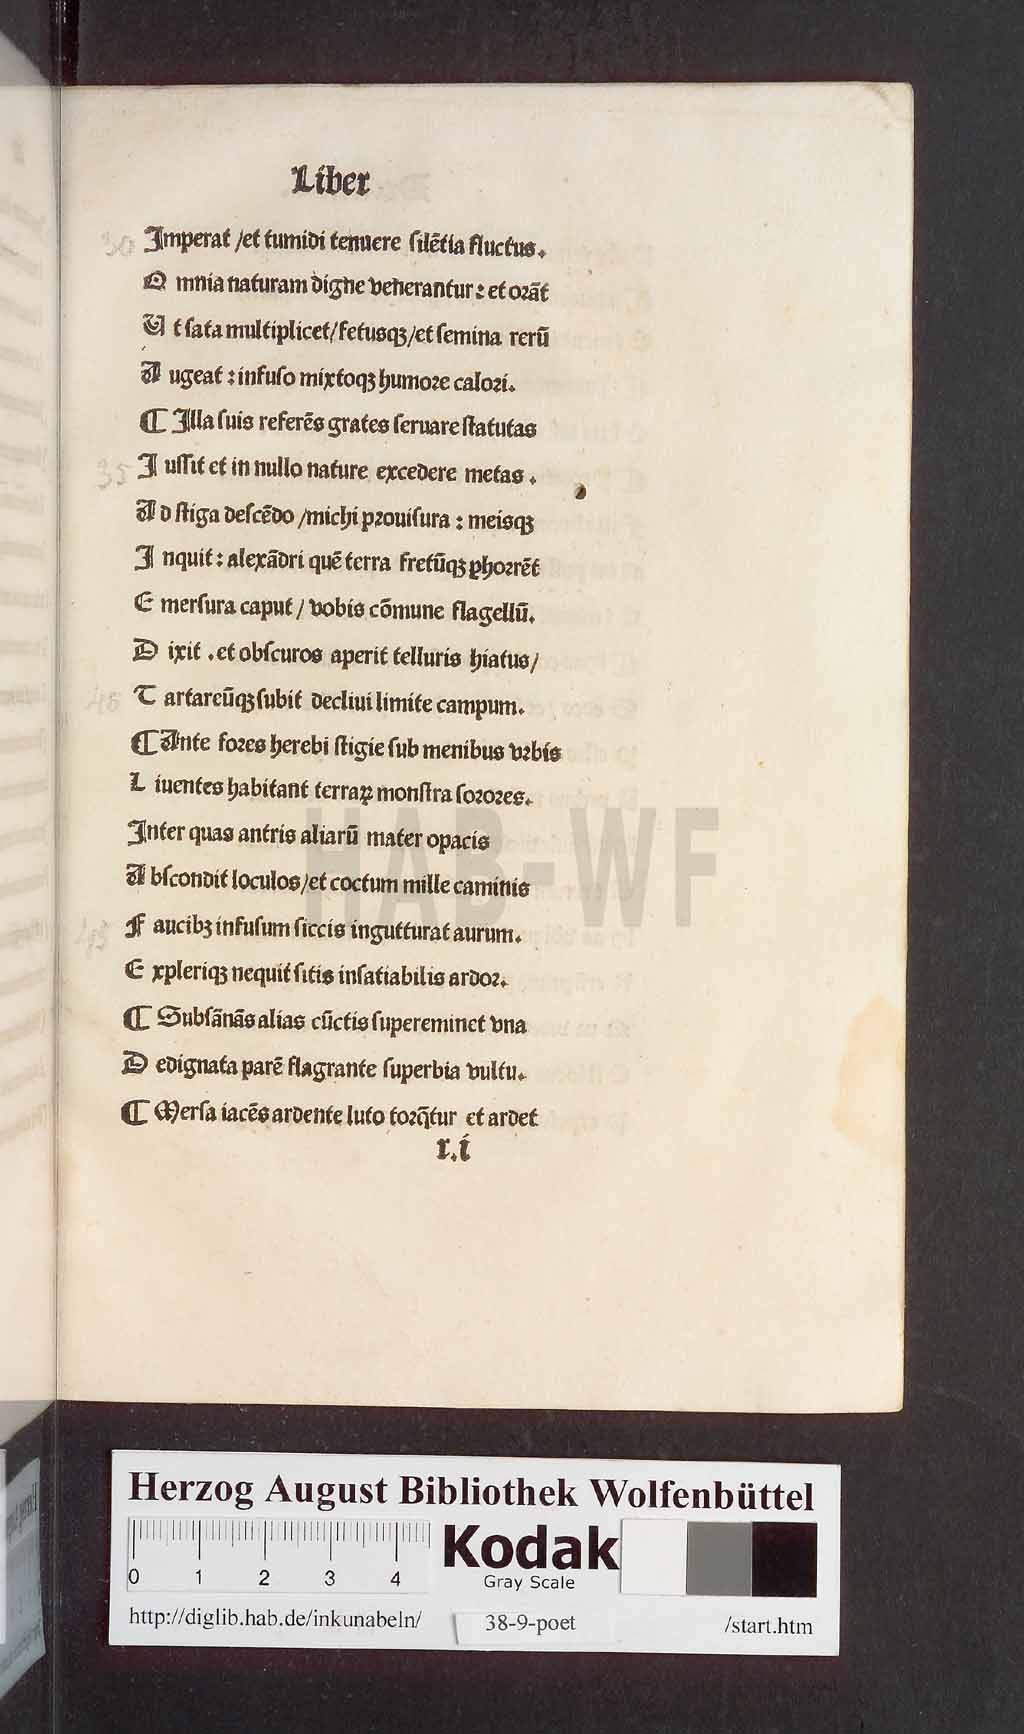 Liber
30 Imperat /et tumidi tenuere silẽtia fluctus.
O mnia naturam digne venerantur: et orãt
U t sata multiplicet/fetusqꝫ/et semina rerũ
A ugeat: infuso mixtoqꝫ humore calori.
¶ Illa suis referẽs grates seruare statutas
35 I ussit et in nullo nature excedere metas.
A d stiga descẽdo /michi prouisura: meisqꝫ
I nquit: alexãdri quẽ terra fretũqꝫ phorrẽt
E mersura caput / vobis cõmune flagellũ.
D ixit .et obscuros aperit telluris hiatus/
40 T artareũqꝫ subit decliui limite campum.
¶ Ante fores herebi stigie sub menibus vrbis
L iuentes habitant terraꝝ monstra sorores.
Inter quas antris aliarũ mater opacis
A bscondit loculos/et coctum mille caminis
45 F aucibꝫ infusum siccis ingutturat aurum.
E xpleriqꝫ nequit sitis insatiabilis ardor.
¶ Subsãnãs alias cũctis supereminet vna
D edignata parẽ flagrante superbia vultu.
¶ Mersa iacẽs ardente luto torq̃tur et ardet
r.i
HAB-WF
Herzog August Bibliothek Wolfenbüttel
0 1 2 3 4
Kodak
Gray Scale
http://diglib.hab.de/inkunabeln/ 38-9-poet /start.htm